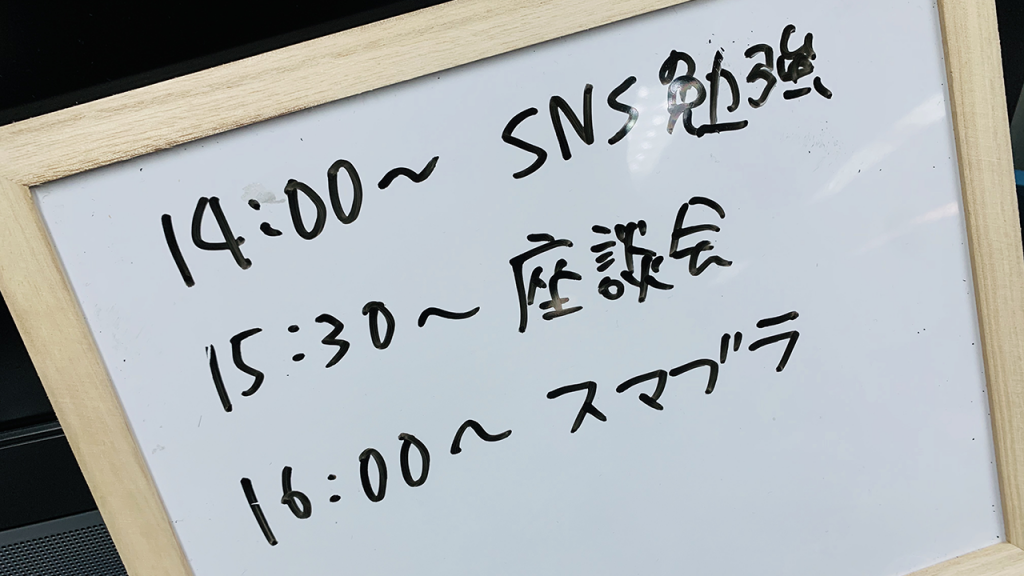 14:00〜 SNS勉強
15:30〜 座談会
16:00〜 スマブラ